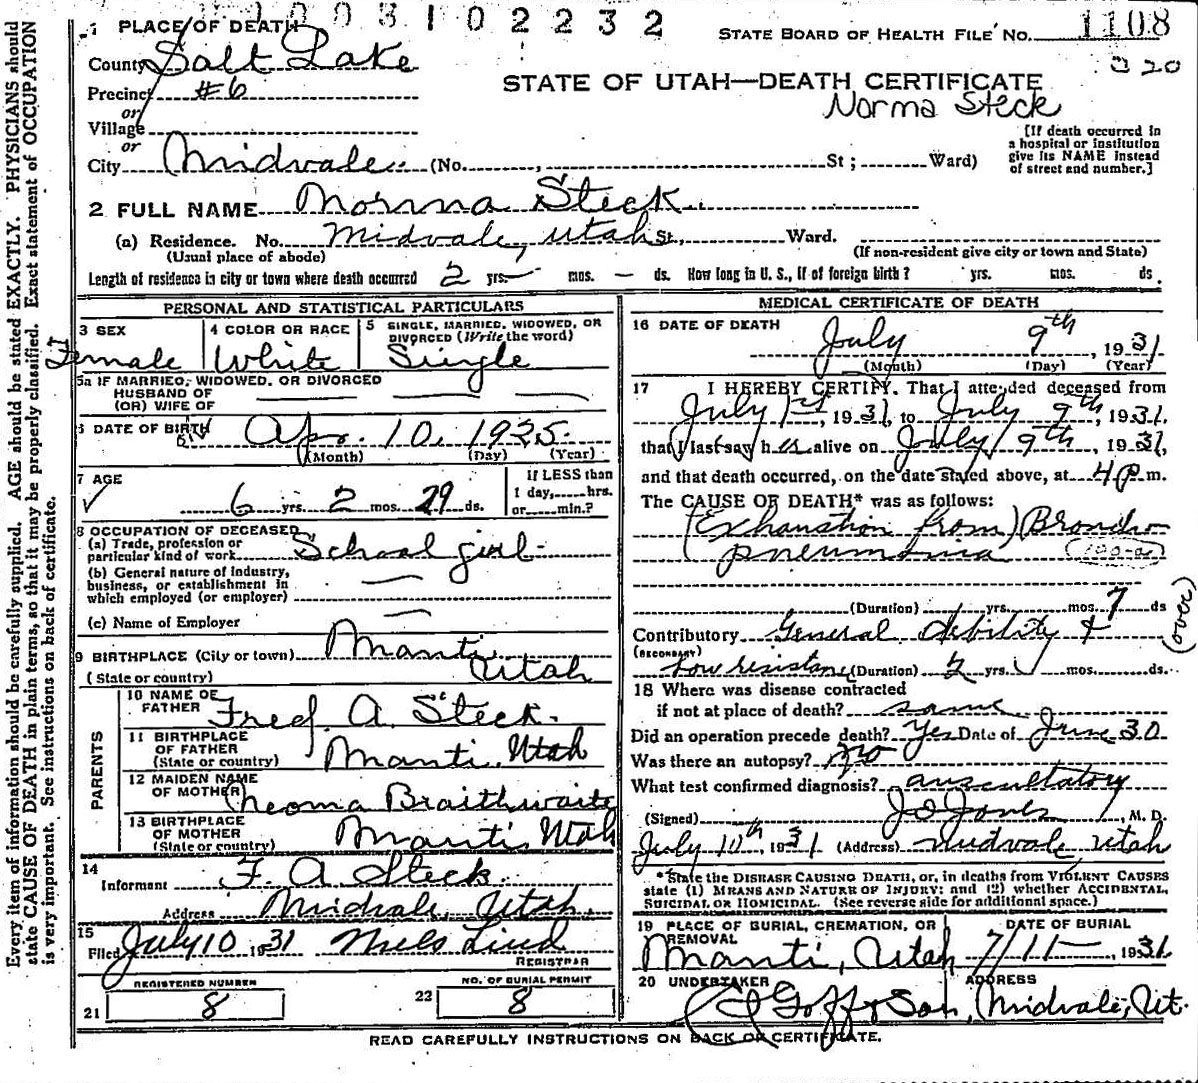 1003102232
1 PLACE OF DEATH
STATE BOARD OF HEALTH FILE No. 1108
County Salt Lake
320
Precinct #6
STATE OF UTAH—DEATH CERTIFICATE
Norma Steck
or
Village
or
City Midvale (No. , St ; Ward)
[If death occurred in
a hospital or institution
give its NAME instead
of street and number.]
2 FULL NAME Norma Steck
(a) Residence. No. Midvale, Utah St., Ward.
(Usual place of abode)
(If non-resident give city or town and State)
Length of residence in city or town where death occurred 2 yrs. — mos. — ds. How long in U. S., if of foreign birth? yrs. mos. ds.
PERSONAL AND STATISTICAL PARTICULARS
3 SEX
Female
4 COLOR OR RACE
White
5 SINGLE, MARRIED, WIDOWED, OR
DIVORCED (Write the word)
Single
5a IF MARRIED, WIDOWED, OR DIVORCED
HUSBAND OF
(OR) WIFE OF
6 DATE OF BIRTH
Apr. 10, 1925.
(Month) (Day) (Year)
7 AGE
6 yrs. 2 mos. 29 ds.
If LESS than
1 day, hrs.
or min.?
8 OCCUPATION OF DECEASED
(a) Trade, profession or
particular kind of work School girl
(b) General nature of industry,
business, or establishment in
which employed (or employer)
(c) Name of Employer
9 BIRTHPLACE (City or town) Manti
(State or country) Utah
PARENTS
10 NAME OF
FATHER Fred A. Steck.
11 BIRTHPLACE
OF FATHER
(State or country) Manti, Utah
12 MAIDEN NAME
OF MOTHER Cheoma Braithwaite
13 BIRTHPLACE
OF MOTHER
(State or country) Manti, Utah
14
Informant F. A. Steck
Address Midvale, Utah.
15
Filed July 10 1931 Niels Lind
REGISTRAR
REGISTERED NUMBER
21 8
NO. OF BURIAL PERMIT
22 8
MEDICAL CERTIFICATE OF DEATH
16 DATE OF DEATH
July 9th, 1931
(Month) (Day) (Year)
17 I HEREBY CERTIFY. That I attended deceased from
July 1st, 1931, to July 9th, 1931,
that I last saw her alive on July 9th, 1931,
and that death occurred, on the date stated above, at 4 p.m.
The CAUSE OF DEATH* was as follows:
(Exhaustion from) Broncho
pneumonia
(Duration) yrs. mos. 7 ds
(over)
Contributory General debility &
(SECONDARY)
Low resistance (Duration) 2 yrs. mos. ds.
18 Where was disease contracted
if not at place of death? same
Did an operation precede death? Yes Date of June 30
Was there an autopsy? No
What test confirmed diagnosis? auscultatory
(Signed) J O Jones, M. D.
July 10th, 1931 (Address) Midvale Utah
*State the DISEASE CAUSING DEATH, or, in deaths from VIOLENT CAUSES
state (1) MEANS AND NATURE OF INJURY: and (2) whether ACCIDENTAL,
SUICIDAL OR HOMICIDAL. (See reverse side for additional space.)
19 PLACE OF BURIAL, CREMATION, OR
REMOVAL
Manti, Utah
DATE OF BURIAL
7/11— 1931
20 UNDERTAKER
Goff & Son,
ADDRESS
Midvale, Ut.
READ CAREFULLY INSTRUCTIONS ON BACK OF CERTIFICATE.
Every item of information should be carefully supplied. AGE should be stated EXACTLY. PHYSICIANS should
state CAUSE OF DEATH in plain terms, so that it may be properly classified. Exact statement of OCCUPATION
is very important. See instructions on back of certificate.